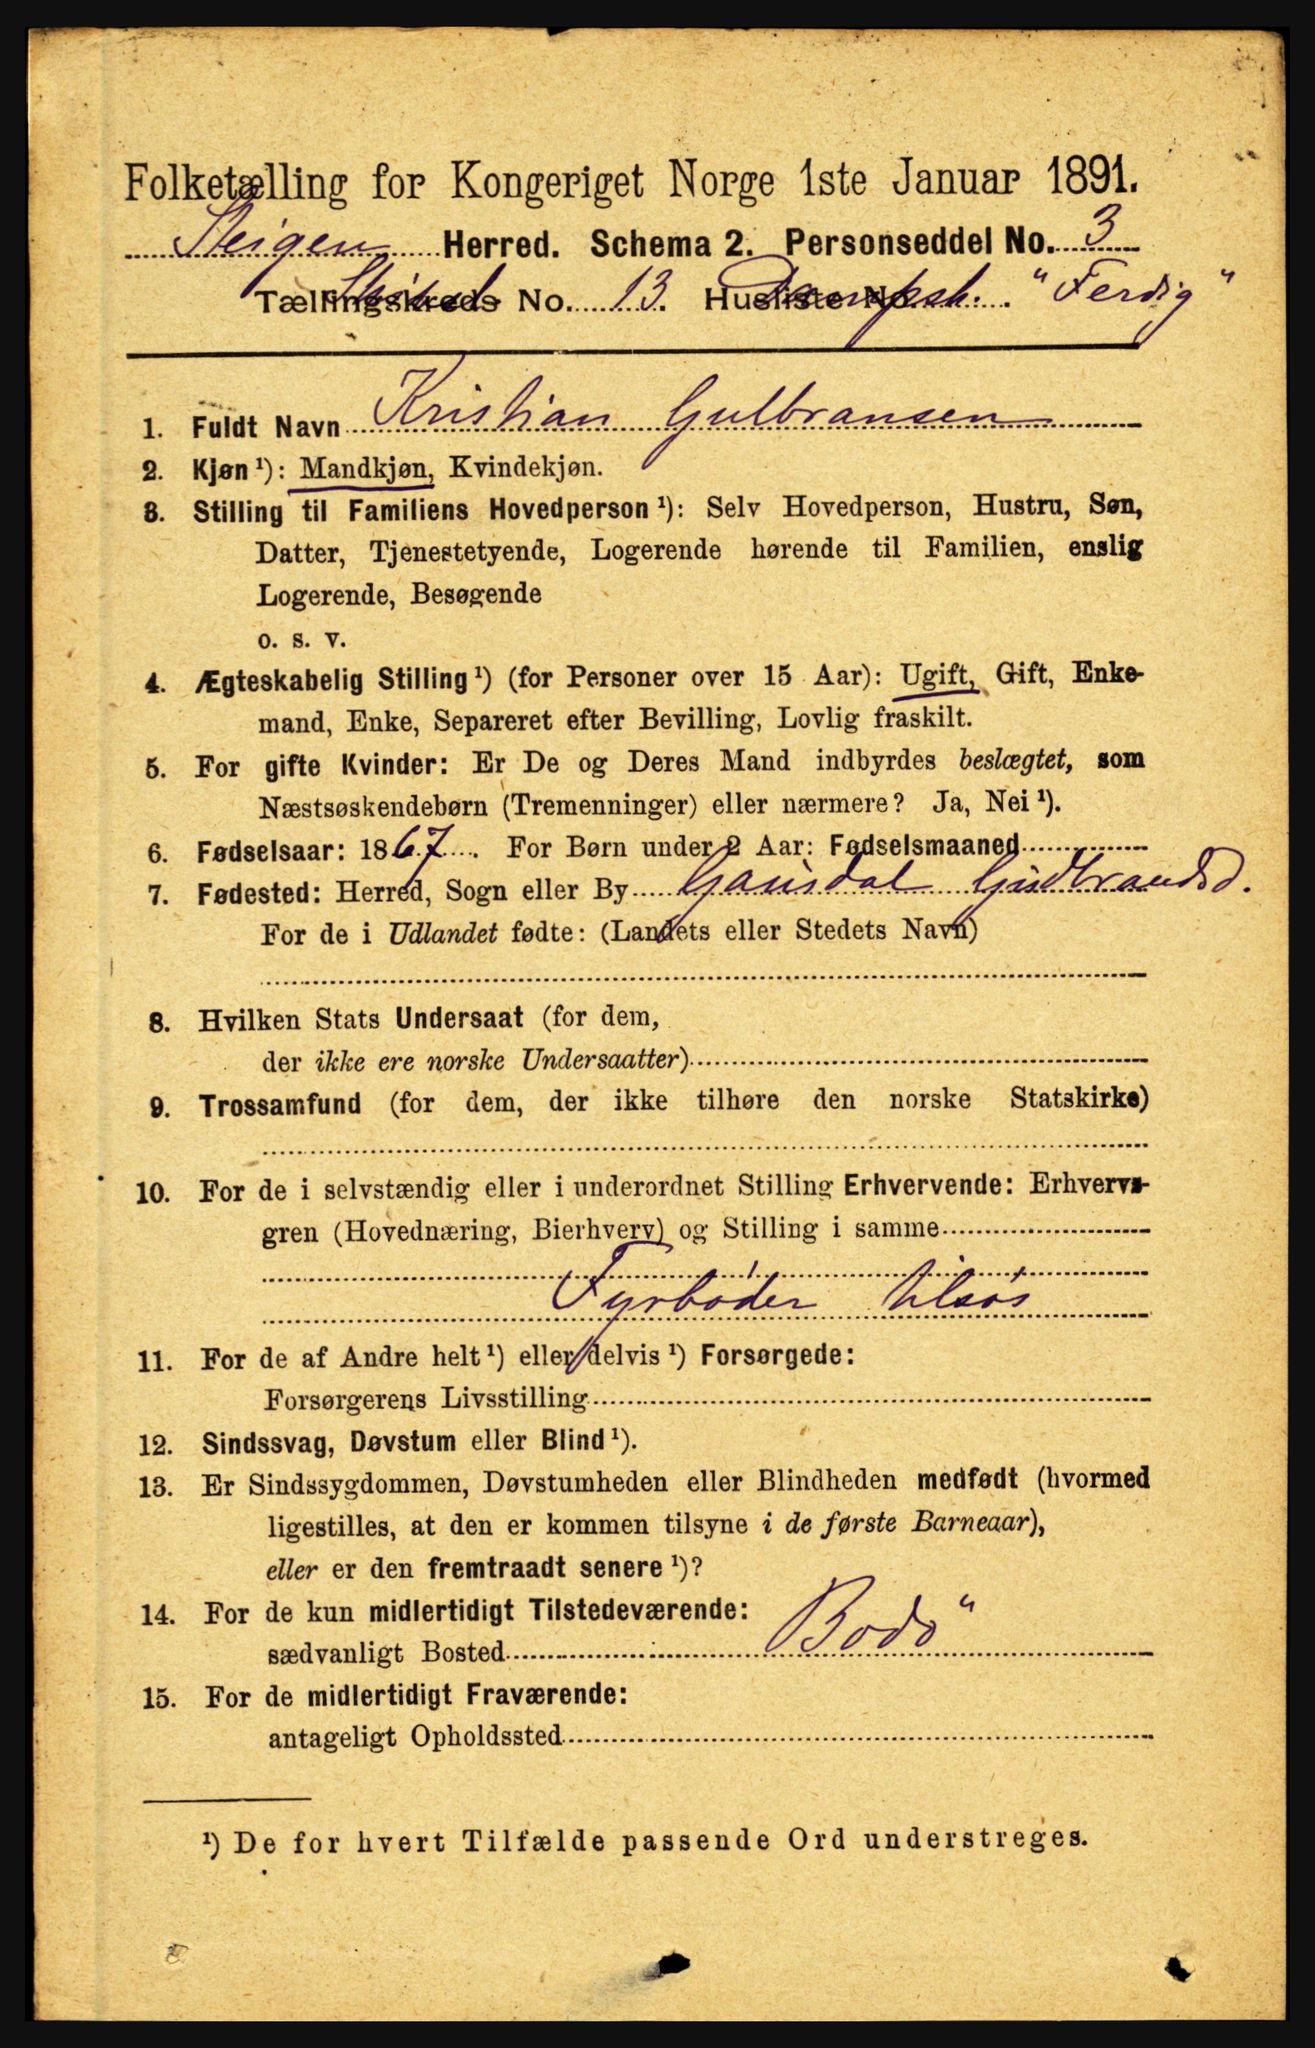 Folketælling for Kongeriget Norge 1ste Januar 1891.
Steigen Herred. Schema 2. Personseddel No. 3
Tællingskreds No. 13. Husliste No. Dampsk. "Ferdig"
1. Fuldt Navn Kristian Gulbransen
2. Kjøn ¹): Mandkjøn, Kvindekjøn.
3. Stilling til Familiens Hovedperson ¹): Selv Hovedperson, Hustru, Søn,
Datter, Tjenestetyende, Logerende hørende til Familien, enslig
Logerende, Besøgende
o. s. v.
4. Ægteskabelig Stilling ¹) (for Personer over 15 Aar): Ugift, Gift, Enke-
mand, Enke, Separeret efter Bevilling, Lovlig fraskilt.
5. For gifte Kvinder: Er De og Deres Mand indbyrdes beslægtet, som
Næstsøskendebørn (Tremenninger) eller nærmere? Ja, Nei ¹).
6. Fødselsaar: 1867. For Børn under 2 Aar: Fødselsmaaned
7. Fødested: Herred, Sogn eller By Gausdal Gudbrandsd.
For de i Udlandet fødte: (Landets eller Stedets Navn)
8. Hvilken Stats Undersaat (for dem,
der ikke ere norske Undersaatter)
9. Trossamfund (for dem, der ikke tilhøre den norske Statskirke)
10. For de i selvstændig eller i underordnet Stilling Erhvervende: Erhvervs-
gren (Hovednæring, Bierhverv) og Stilling i samme
Fyrbøder tilsøs
11. For de af Andre helt ¹) eller delvis ¹) Forsørgede:
Forsørgerens Livsstilling
12. Sindssvag, Døvstum eller Blind ¹).
13. Er Sindssygdommen, Døvstumheden eller Blindheden medfødt (hvormed
ligestilles, at den er kommen tilsyne i de første Barneaar),
eller er den fremtraadt senere ¹)?
14. For de kun midlertidigt Tilstedeværende:
sædvanligt Bosted Bodø
15. For de midlertidigt Fraværende:
antageligt Opholdssted
¹) De for hvert Tilfælde passende Ord understreges.